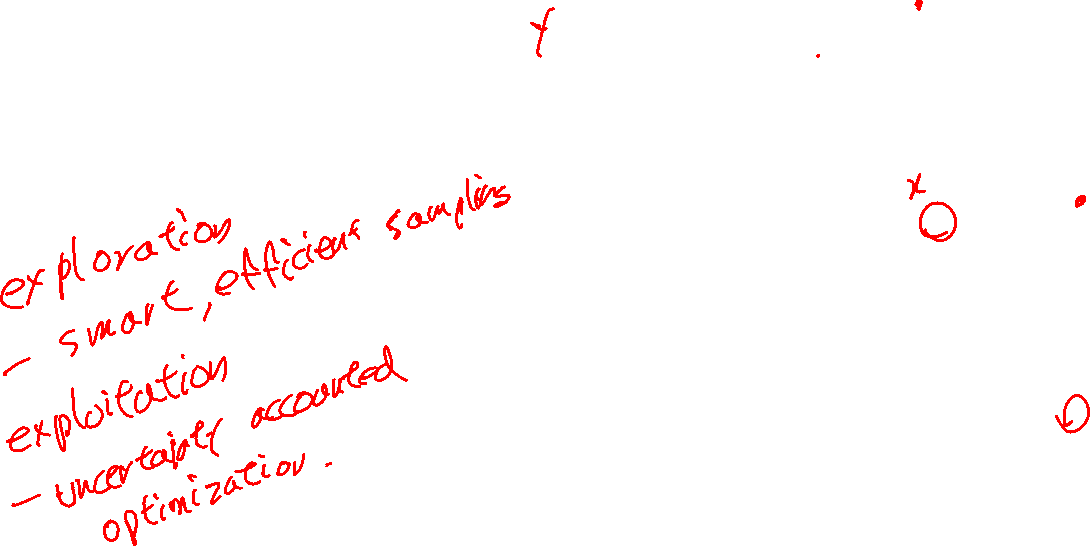 Y
x
exploration
- smart, efficient sampling
exploitation
- uncertainty accounted
optimization.